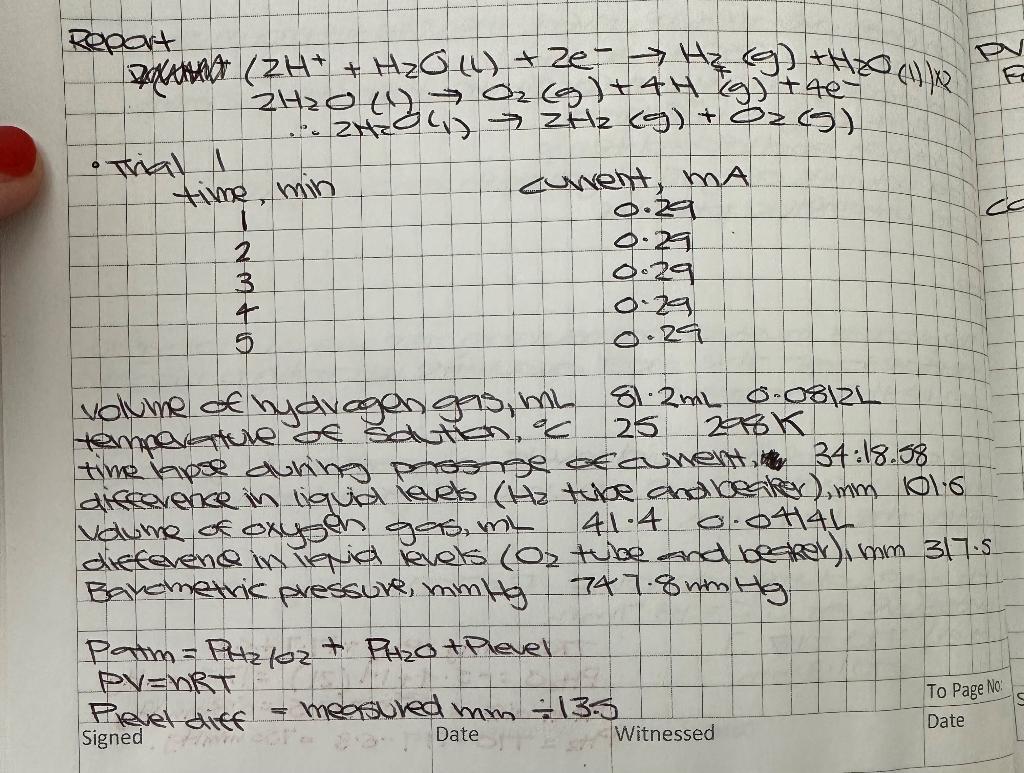 Report
(2H+ + H2O(l) + 2e- → H2(g) + H2O(l))x2
2H2O(l) → O2(g) + 4H+(g) + 4e-
∴ 2H2O(l) → 2H2(g) + O2(g)
• Trial 1
time, min current, mA
1 0.29
2 0.29
3 0.29
4 0.29
5 0.29
volume of hydrogen gas, mL 81.2mL 0.0812L
temperature of solution, °C 25 298K
time lapse during passage of current, 34:18.58
difference in liquid levels (H2 tube and beaker), mm 101.6
volume of oxygen gas, mL 41.4 0.0414L
difference in liquid levels (O2 tube and beaker), mm 317.5
Barometric pressure, mmHg 747.8mmHg
Patm = PH2/O2 + PH2O + Plevel
PV=nRT
Plevel diff = measured mm ÷13.5
To Page No:
Signed Date Witnessed Date